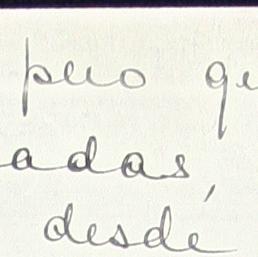 pero qu
adas,
desde